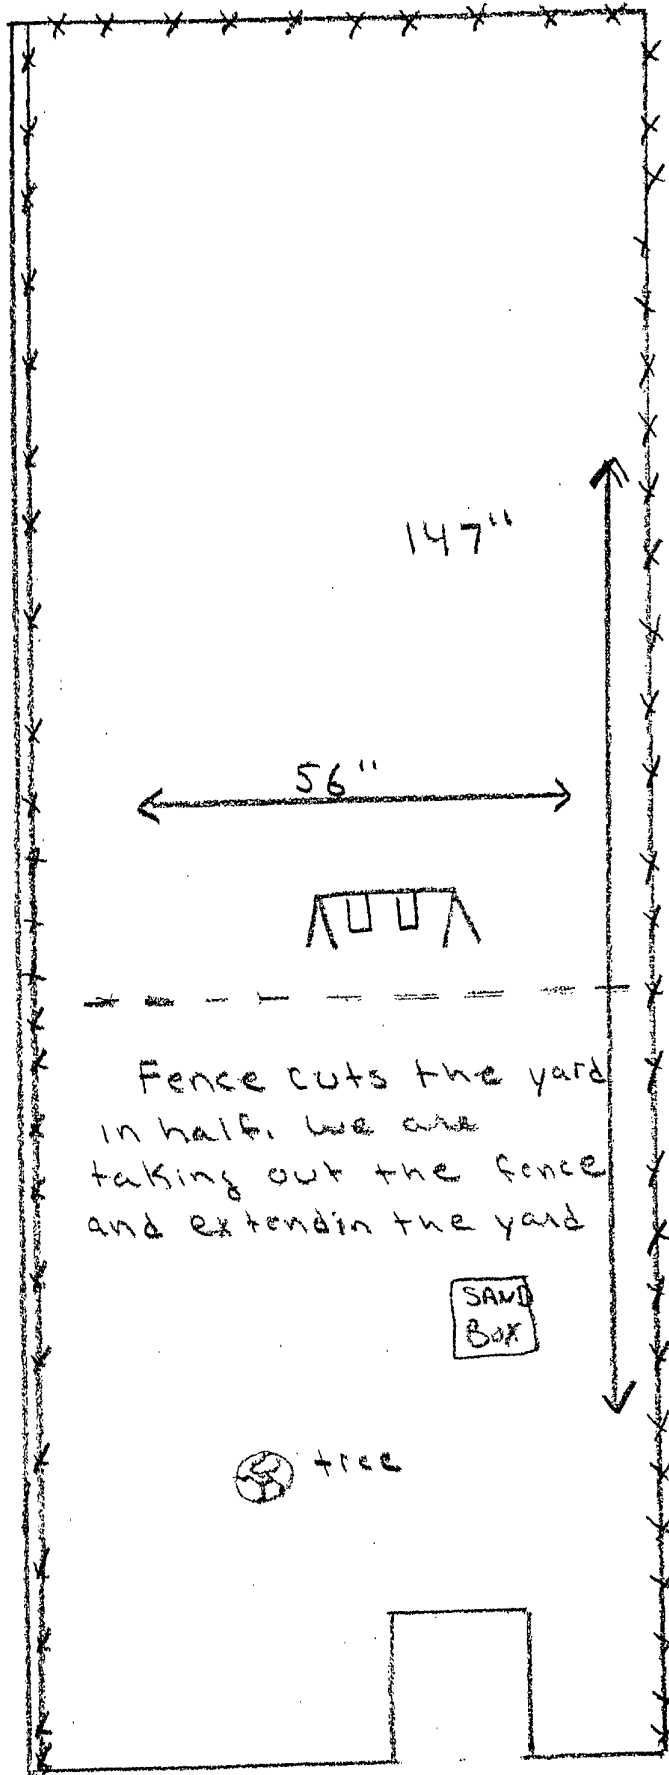 147"
56"
Fence cuts the yard
in half. we are
taking out the fence
and extendin the yard
SAND
BOX
tree